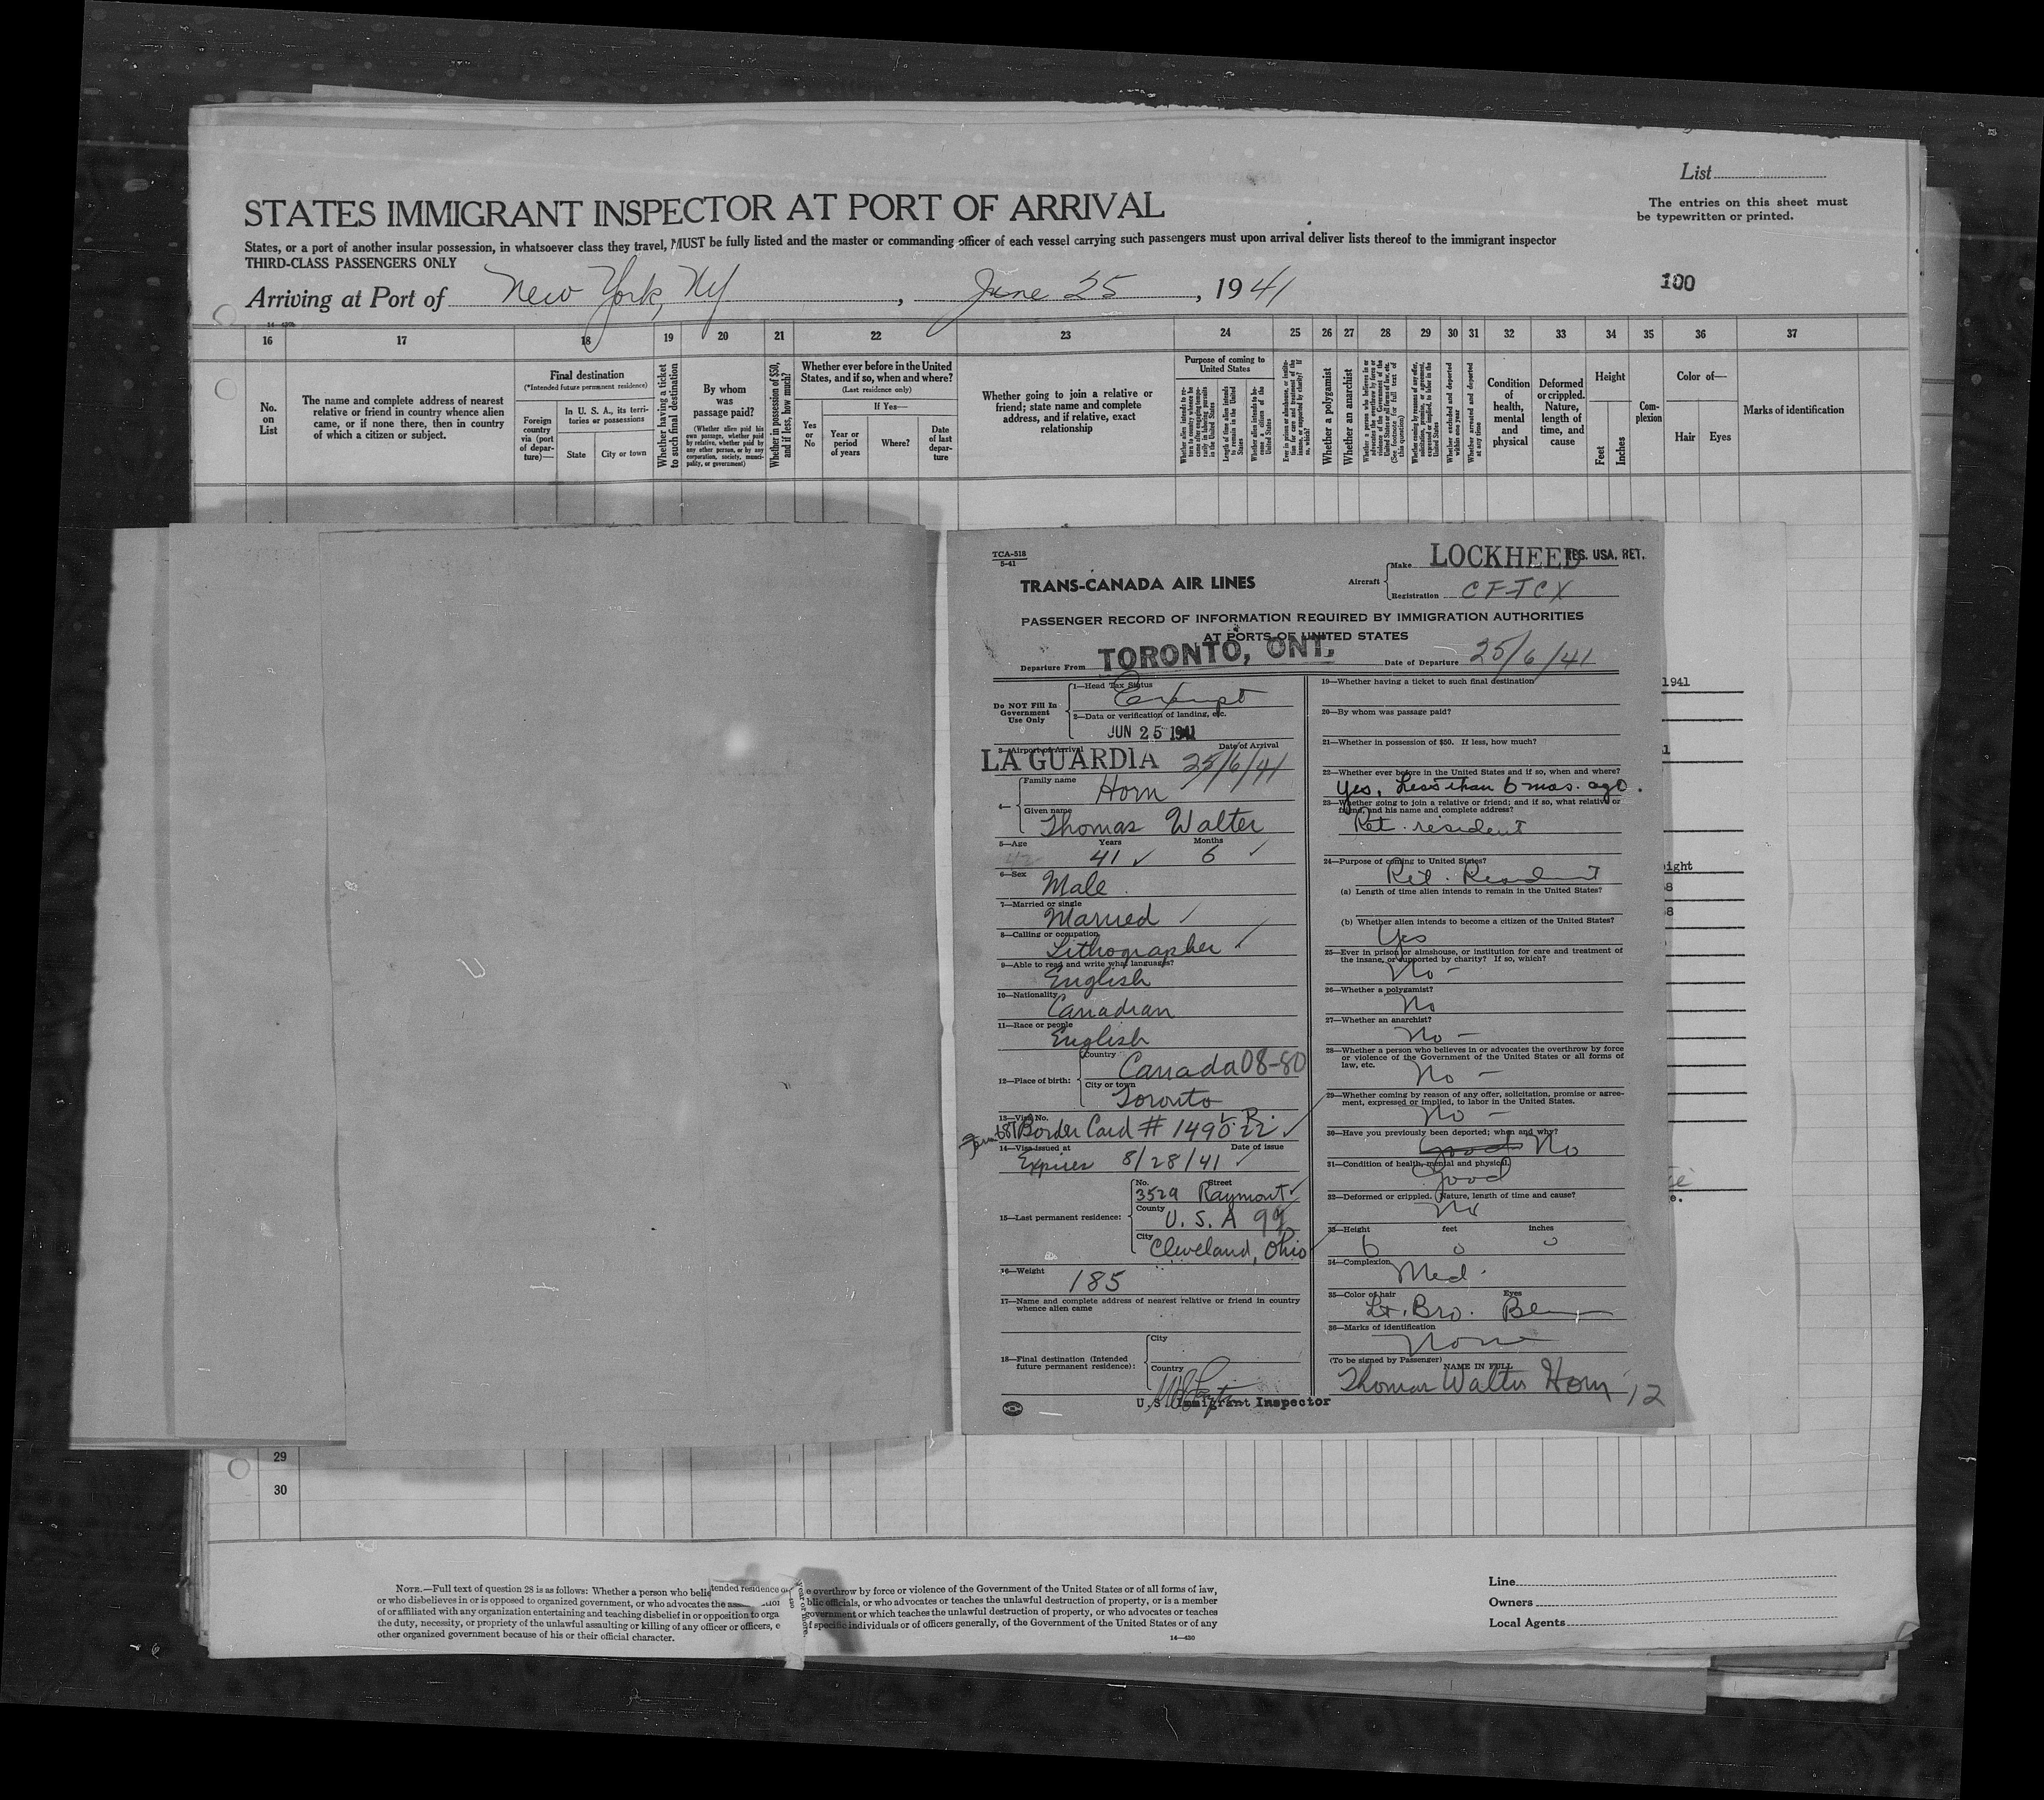 List
STATES IMMIGRANT INSPECTOR AT PORT OF ARRIVAL
The entries on this sheet must
be typewritten or printed.
States, or a port of another insular possession, in whatsoever class they travel, MUST be fully listed and the master or commanding officer of each vessel carrying such passengers must upon arrival deliver lists thereof to the immigrant inspector
THIRD-CLASS PASSENGERS ONLY
Arriving at Port of New York, NY, June 25, 1941
100
16 17 18 19 20 21 22 23 24 25 26 27 28 29 30 31 32 33 34 35 36 37
No. on List
The name and complete address of nearest relative or friend in country whence alien came, or if none there, then in country of which a citizen or subject.
Final destination
(*Intended future permanent residence)
Foreign country via (port of departure)—
In U. S. A., its territories or possessions
State
City or town
Whether having a ticket to such final destination
By whom was passage paid?
(Whether alien paid his own passage, whether paid by relative, whether paid by any other person, or by any corporation, society, municipality, or government)
Whether in possession of $50, and if less, how much?
Whether ever before in the United States, and if so, when and where?
(Last residence only)
If Yes—
Yes or No
Year or period of years
Where?
Date of last departure
Whether going to join a relative or friend; state name and complete address, and if relative, exact relationship
Purpose of coming to United States
Whether a polygamist
Whether an anarchist
Condition of health, mental and physical
Deformed or crippled. Nature, length of time, and cause
Height
Feet
Inches
Complexion
Color of—
Hair
Eyes
Marks of identification
TCA-518
5-41
TRANS-CANADA AIR LINES
Aircraft
Make LOCKHEED
RES. USA. RET.
Registration CF-TCX
PASSENGER RECORD OF INFORMATION REQUIRED BY IMMIGRATION AUTHORITIES
AT PORTS OF UNITED STATES
Departure From TORONTO, ONT.
Date of Departure 25/6/41
Do NOT Fill In
Government
Use Only
1—Head Tax Status
Exempt
2—Data or verification of landing, etc.
JUN 25 1941
3—Airport of Arrival Date of Arrival
LA GUARDIA 25/6/41
4—
Family name
Horn
Given name
Thomas Walter
5—Age Years Months
42 41 ✓ 6 ✓
6—Sex
Male
7—Married or single
Married
8—Calling or occupation
Lithographer
9—Able to read and write what languages?
English
10—Nationality
Canadian
11—Race or people
English
12—Place of birth:
Country
Canada 08-80
City or town
Toronto
13—Visa No.
Border Card # 149022
14—Visa issued at Date of issue
Expires 8/28/41
15—Last permanent residence:
No. Street
3529 Raymont
County
U. S. A 99
City
Cleveland, Ohio
16—Weight
185
17—Name and complete address of nearest relative or friend in country
whence alien came
18—Final destination (Intended
future permanent residence):
City
Country
U.S. Immigrant Inspector
19—Whether having a ticket to such final destination
20—By whom was passage paid?
21—Whether in possession of $50. If less, how much?
22—Whether ever before in the United States and if so, when and where?
Yes, Less than 6 mos. ago.
23—Whether going to join a relative or friend; and if so, what relative or
friend, and his name and complete address?
Ret. resident
24—Purpose of coming to United States?
Ret. Resident
(a) Length of time alien intends to remain in the United States?
(b) Whether alien intends to become a citizen of the United States?
Yes
25—Ever in prison or almshouse, or institution for care and treatment of
the insane, or supported by charity? If so, which?
No -
26—Whether a polygamist?
No
27—Whether an anarchist?
No -
28—Whether a person who believes in or advocates the overthrow by force
or violence of the Government of the United States or all forms of
law, etc.
No -
29—Whether coming by reason of any offer, solicitation, promise or agree-
ment, expressed or implied, to labor in the United States.
No -
30—Have you previously been deported; when and why?
Good No
31—Condition of health, mental and physical.
Good
32—Deformed or crippled. Nature, length of time and cause?
No
33—Height feet inches
6 0 0
34—Complexion
Med.
35—Color of hair Eyes
Lt. Bro.
36—Marks of identification
None
(To be signed by Passenger)
NAME IN FULL
Thomas Walter Horn 12
1941
29
30
NOTE.—Full text of question 28 is as follows: Whether a person who belie
tended residence o
e overthrow by force or violence of the Government of the United States or of all forms of law,
or who disbelieves in or is opposed to organized government, or who advocates the
blic officials, or who advocates or teaches the unlawful destruction of property, or is a member
of or affiliated with any organization entertaining and teaching disbelief in or opposition to orga
government or which teaches the unlawful destruction of property, or who advocates or teaches
the duty, necessity, or propriety of the unlawful assaulting or killing of any officer or officers, e
f specific individuals or of officers generally, of the Government of the United States or of any
other organized government because of his or their official character.
14—430
Line
Owners
Local Agents